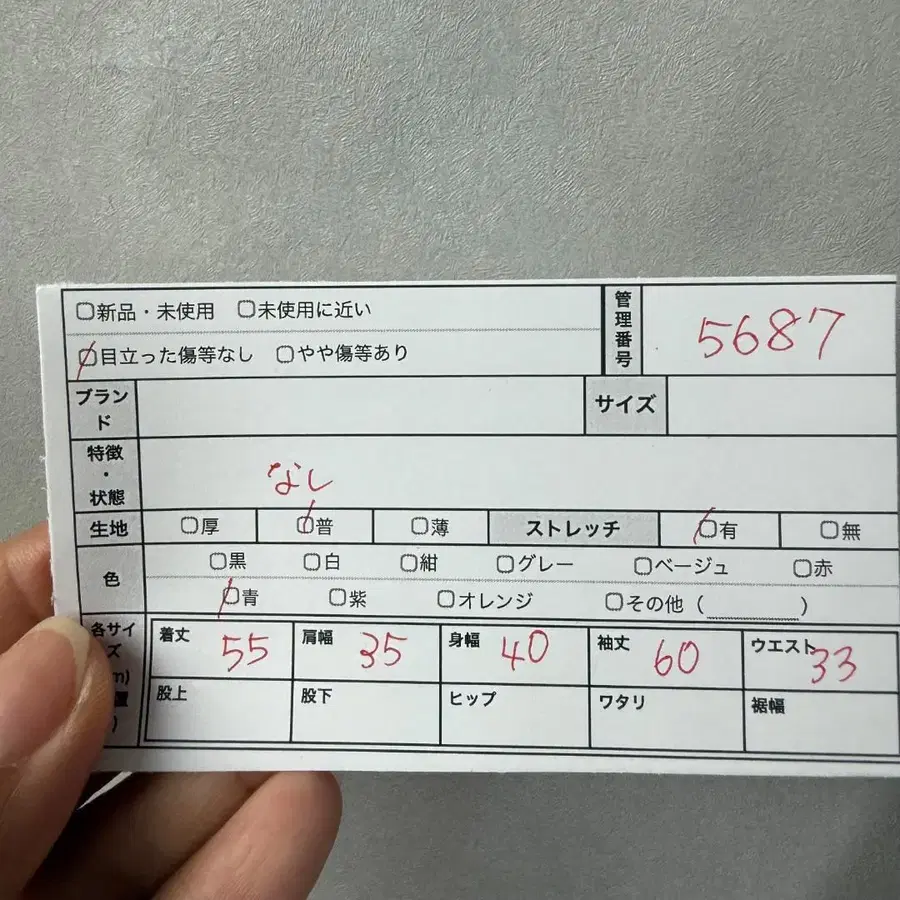 ▢新品・未使用 ▢未使用に近い
▢目立った傷等なし ▢やや傷等あり
管理番号 5687
ブランド サイズ
特徴・状態 なし
生地 ▢厚 ▢普 ▢薄 ストレッチ ▢有 ▢無
色 ▢黒 ▢白 ▢紺 ▢グレー ▢ベージュ ▢赤
▢青 ▢紫 ▢オレンジ ▢その他 ( )
各サイズ 着丈 55 肩幅 35 身幅 40 袖丈 60 ウエスト 33
m) 股上 股下 ヒップ ワタリ 裾幅